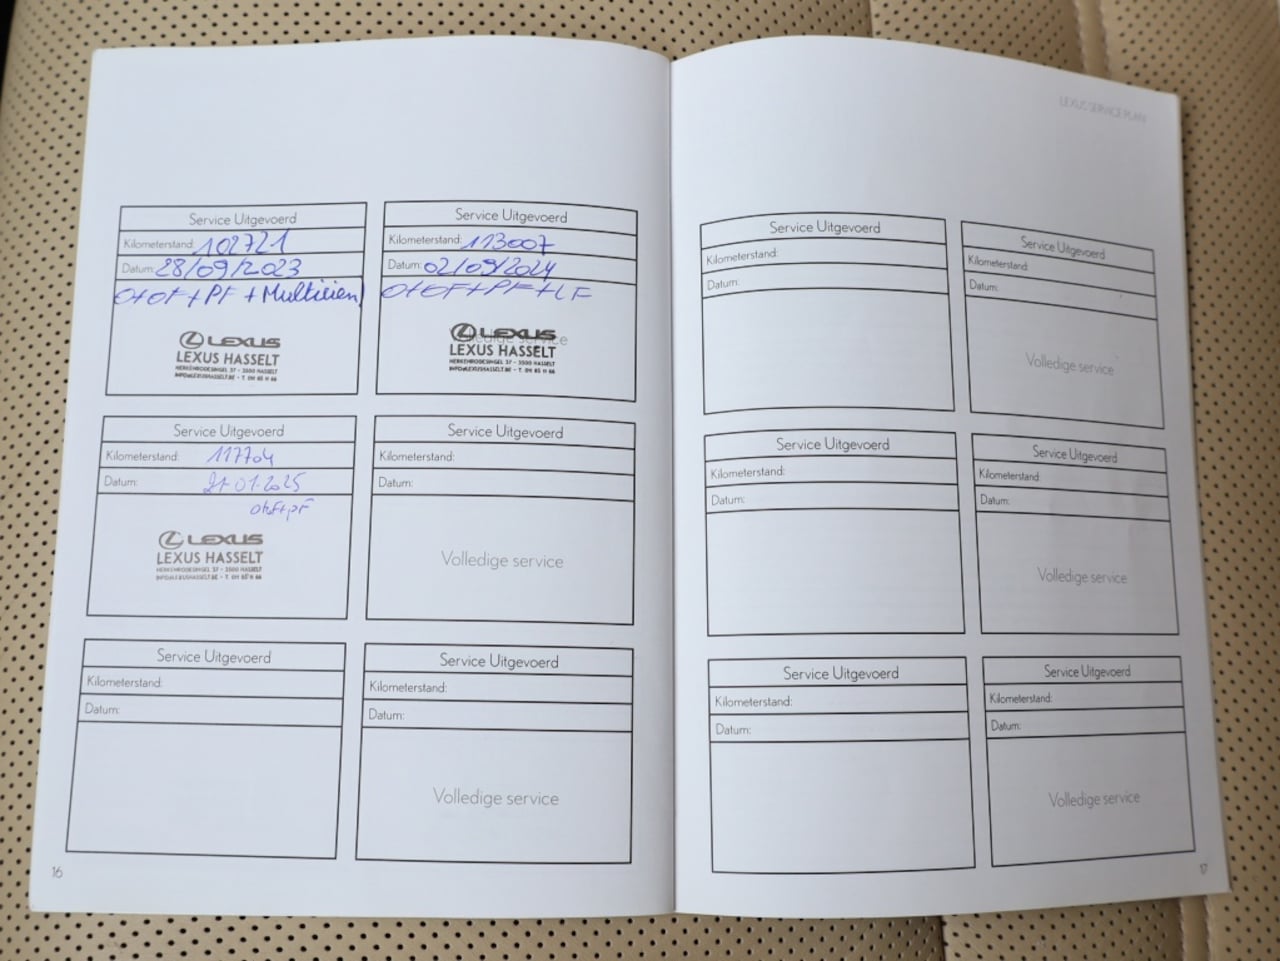 LEXUS SERVICE PLAN
Service Uitgevoerd
Kilometerstand: 102721
Datum: 28/09/2023
O+OF+PF+Multirien
LEXUS
LEXUS HASSELT
HERKENRODESINGEL 37 - 3500 HASSELT
INFO@LEXUSHASSELT.BE - T. 011 85 11 66
Service Uitgevoerd
Kilometerstand: 113007
Datum: 02/09/2024
O+OF+PF+LF
Volledige service
LEXUS
LEXUS HASSELT
HERKENRODESINGEL 37 - 3500 HASSELT
INFO@LEXUSHASSELT.BE - T. 011 85 11 66
Service Uitgevoerd
Kilometerstand: 117704
Datum: 01.2025
O+oF+pF
LEXUS
LEXUS HASSELT
HERKENRODESINGEL 37 - 3500 HASSELT
INFO@LEXUSHASSELT.BE - T. 011 85 11 66
Service Uitgevoerd
Kilometerstand:
Datum:
Volledige service
Service Uitgevoerd
Kilometerstand:
Datum:
Service Uitgevoerd
Kilometerstand:
Datum:
Volledige service
16
Service Uitgevoerd
Kilometerstand:
Datum:
Service Uitgevoerd
Kilometerstand:
Datum:
Volledige service
Service Uitgevoerd
Kilometerstand:
Datum:
Service Uitgevoerd
Kilometerstand:
Datum:
Volledige service
Service Uitgevoerd
Kilometerstand:
Datum:
Service Uitgevoerd
Kilometerstand:
Datum:
Volledige service
17